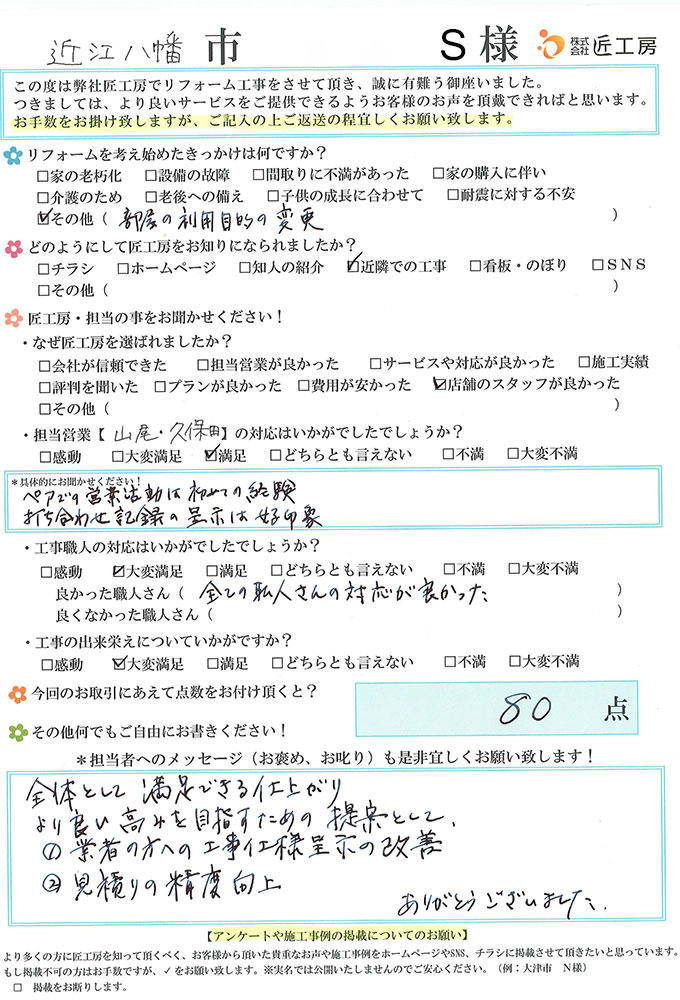 近江八幡 市 S 様 株式会社 匠工房
この度は弊社匠工房でリフォーム工事をさせて頂き、誠に有難う御座いました。
つきましては、より良いサービスをご提供できるようお客様のお声を頂戴できればと思います。
お手数をお掛け致しますが、ご記入の上ご返送の程宜しくお願い致します。
リフォームを考え始めたきっかけは何ですか？
□家の老朽化 □設備の故障 □間取りに不満があった □家の購入に伴い
□介護のため □老後への備え □子供の成長に合わせて □耐震に対する不安
☑その他（ 部屋の利用目的の変更 ）
どのようにして匠工房をお知りになられましたか？
□チラシ □ホームページ □知人の紹介 ☑近隣での工事 □看板・のぼり □SNS
□その他（ ）
匠工房・担当の事をお聞かせください！
・なぜ匠工房を選ばれましたか？
□会社が信頼できた □担当営業が良かった □サービスや対応が良かった □施工実績
□評判を聞いた □プランが良かった □費用が安かった ☑店舗のスタッフが良かった
□その他（ ）
・担当営業【 山尾・久保田 】の対応はいかがでしたでしょうか？
□感動 □大変満足 ☑満足 □どちらとも言えない □不満 □大変不満
＊具体的にお聞かせください！
ペアでの営業活動は初めての経験
打ち合わせ記録の呈示は好印象
・工事職人の対応はいかがでしたでしょうか？
□感動 ☑大変満足 □満足 □どちらとも言えない □不満 □大変不満
良かった職人さん（ 全ての職人さんの対応が良かった ）
良くなかった職人さん（ ）
・工事の出来栄えについていかがですか？
□感動 ☑大変満足 □満足 □どちらとも言えない □不満 □大変不満
今回のお取引にあえて点数をお付け頂くと？ 80 点
その他何でもご自由にお書きください！
＊担当者へのメッセージ（お褒め、お叱り）も是非宜しくお願い致します！
全体として満足できる仕上がり
より良い高みを目指すための提案として、
①業者の方への工事仕様呈示の改善
②見積りの精度向上
ありがとうございました。
【アンケートや施工事例の掲載についてのお願い】
より多くの方に匠工房を知って頂くべく、お客様から頂いた貴重なお声や施工事例をホームページやSNS、チラシに掲載させて頂きたいと思っています。
もし掲載不可の方はお手数ですが、✓をお願い致します。※実名では公開いたしませんのでご安心ください。（例：大津市 N様）
□ 掲載をお断りします。